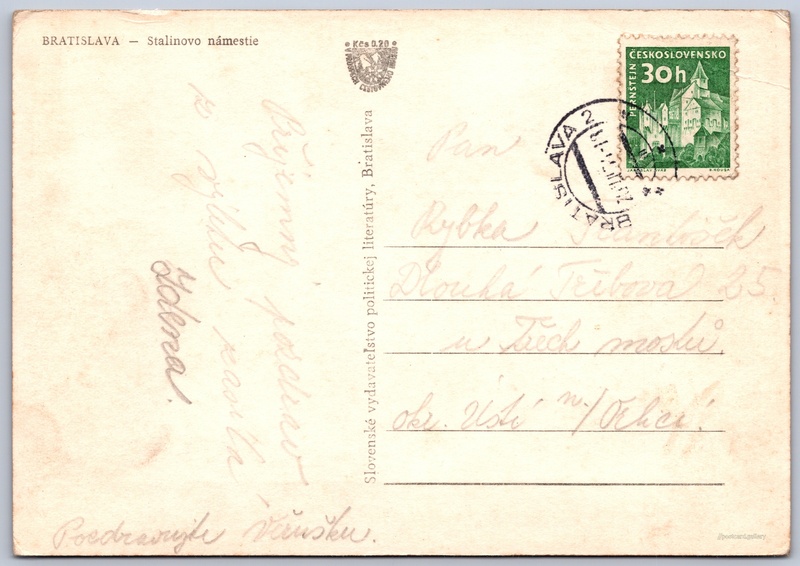 BRATISLAVA — Stalinovo námestie
Kčs 0.20
Příjemný pozdrav
z výletu zasílá
Zdena.
Pozdravujte Věrušku.
Slovenské vydavateľstvo politickej literatúry, Bratislava
ČESKOSLOVENSKO
30h
PERNŠTEJN
BRATISLAVA 2
Pan
Rybka František
Dlouhá Třebová 25.
u Třech mostů.
okr. Ústí n/Orlicí.